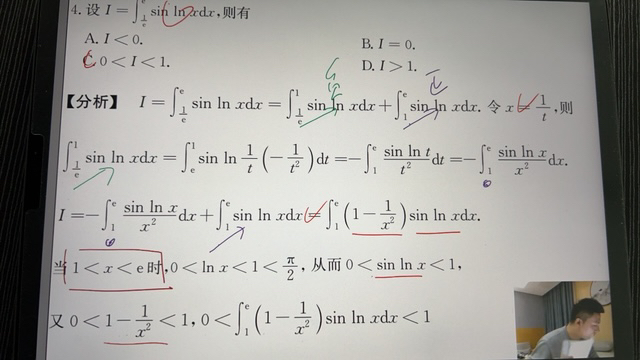 4. 设 I = ∫_{1/e}^{e} sin ln xdx,则有
A. I < 0. B. I = 0.
C. 0 < I < 1. D. I > 1.
【分析】 I = ∫_{1/e}^{e} sin ln xdx = ∫_{1/e}^{1} sin ln xdx + ∫_{1}^{e} sin ln xdx. 令 x = 1/t, 则
∫_{1/e}^{1} sin ln xdx = ∫_{e}^{1} sin ln 1/t (−1/t²) dt = −∫_{1}^{e} sin ln t/t² dt = −∫_{1}^{e} sin ln x/x² dx.
I = −∫_{1}^{e} sin ln x/x² dx + ∫_{1}^{e} sin ln xdx = ∫_{1}^{e} (1 − 1/x²) sin ln xdx.
当 1 < x < e 时, 0 < ln x < 1 < π/2, 从而 0 < sin ln x < 1,
又 0 < 1 − 1/x² < 1, 0 < ∫_{1}^{e} (1 − 1/x²) sin ln xdx < 1